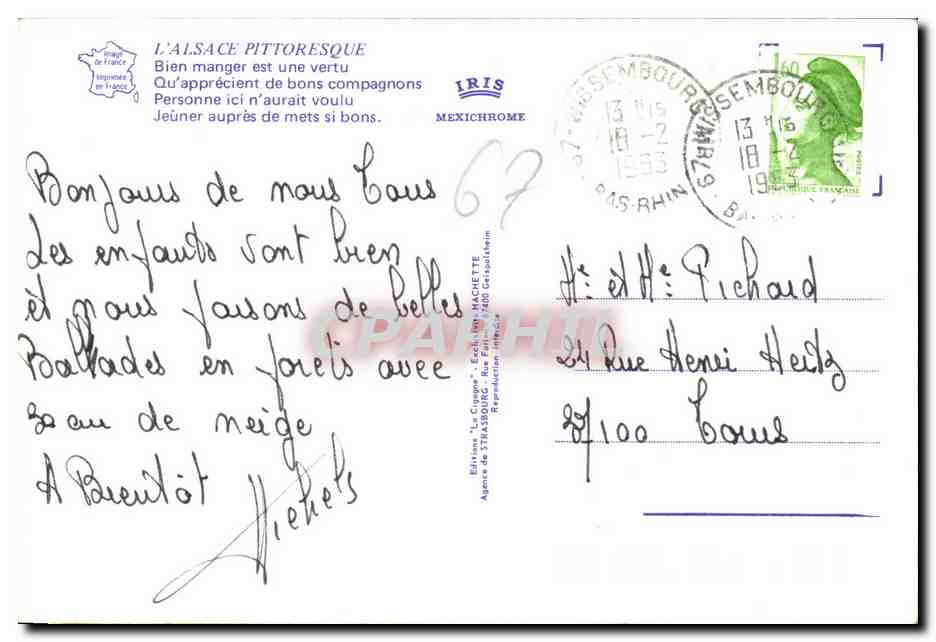 Image
de France
Imprimée
en France
L'ALSACE PITTORESQUE
Bien manger est une vertu
Qu'apprécient de bons compagnons
Personne ici n'aurait voulu
Jeûner auprès de mets si bons.
IRIS
MEXICHROME
67-WISSEMBOURG
13 H15
18-2
1983
BAS-RHIN
67-WISSEMBOURG
13 H15
18-2
1983
BAS-RHIN
1,60
POSTES
REPUBLIQUE FRANÇAISE
67
Bonjour de nous Tous
Les enfants vont bien
et nous faisons de belles
Ballades en forêts avec
30 cm de neige
A Bientôt
Editions "La Cigogne" - Exclusivités HACHETTE
Agence de STRASBOURG - Rue Forlen - 67400 Geispolsheim
Reproduction interdite
Mr et Me Pichard
24 Rue Henri
37100 Tours
CPARHIL